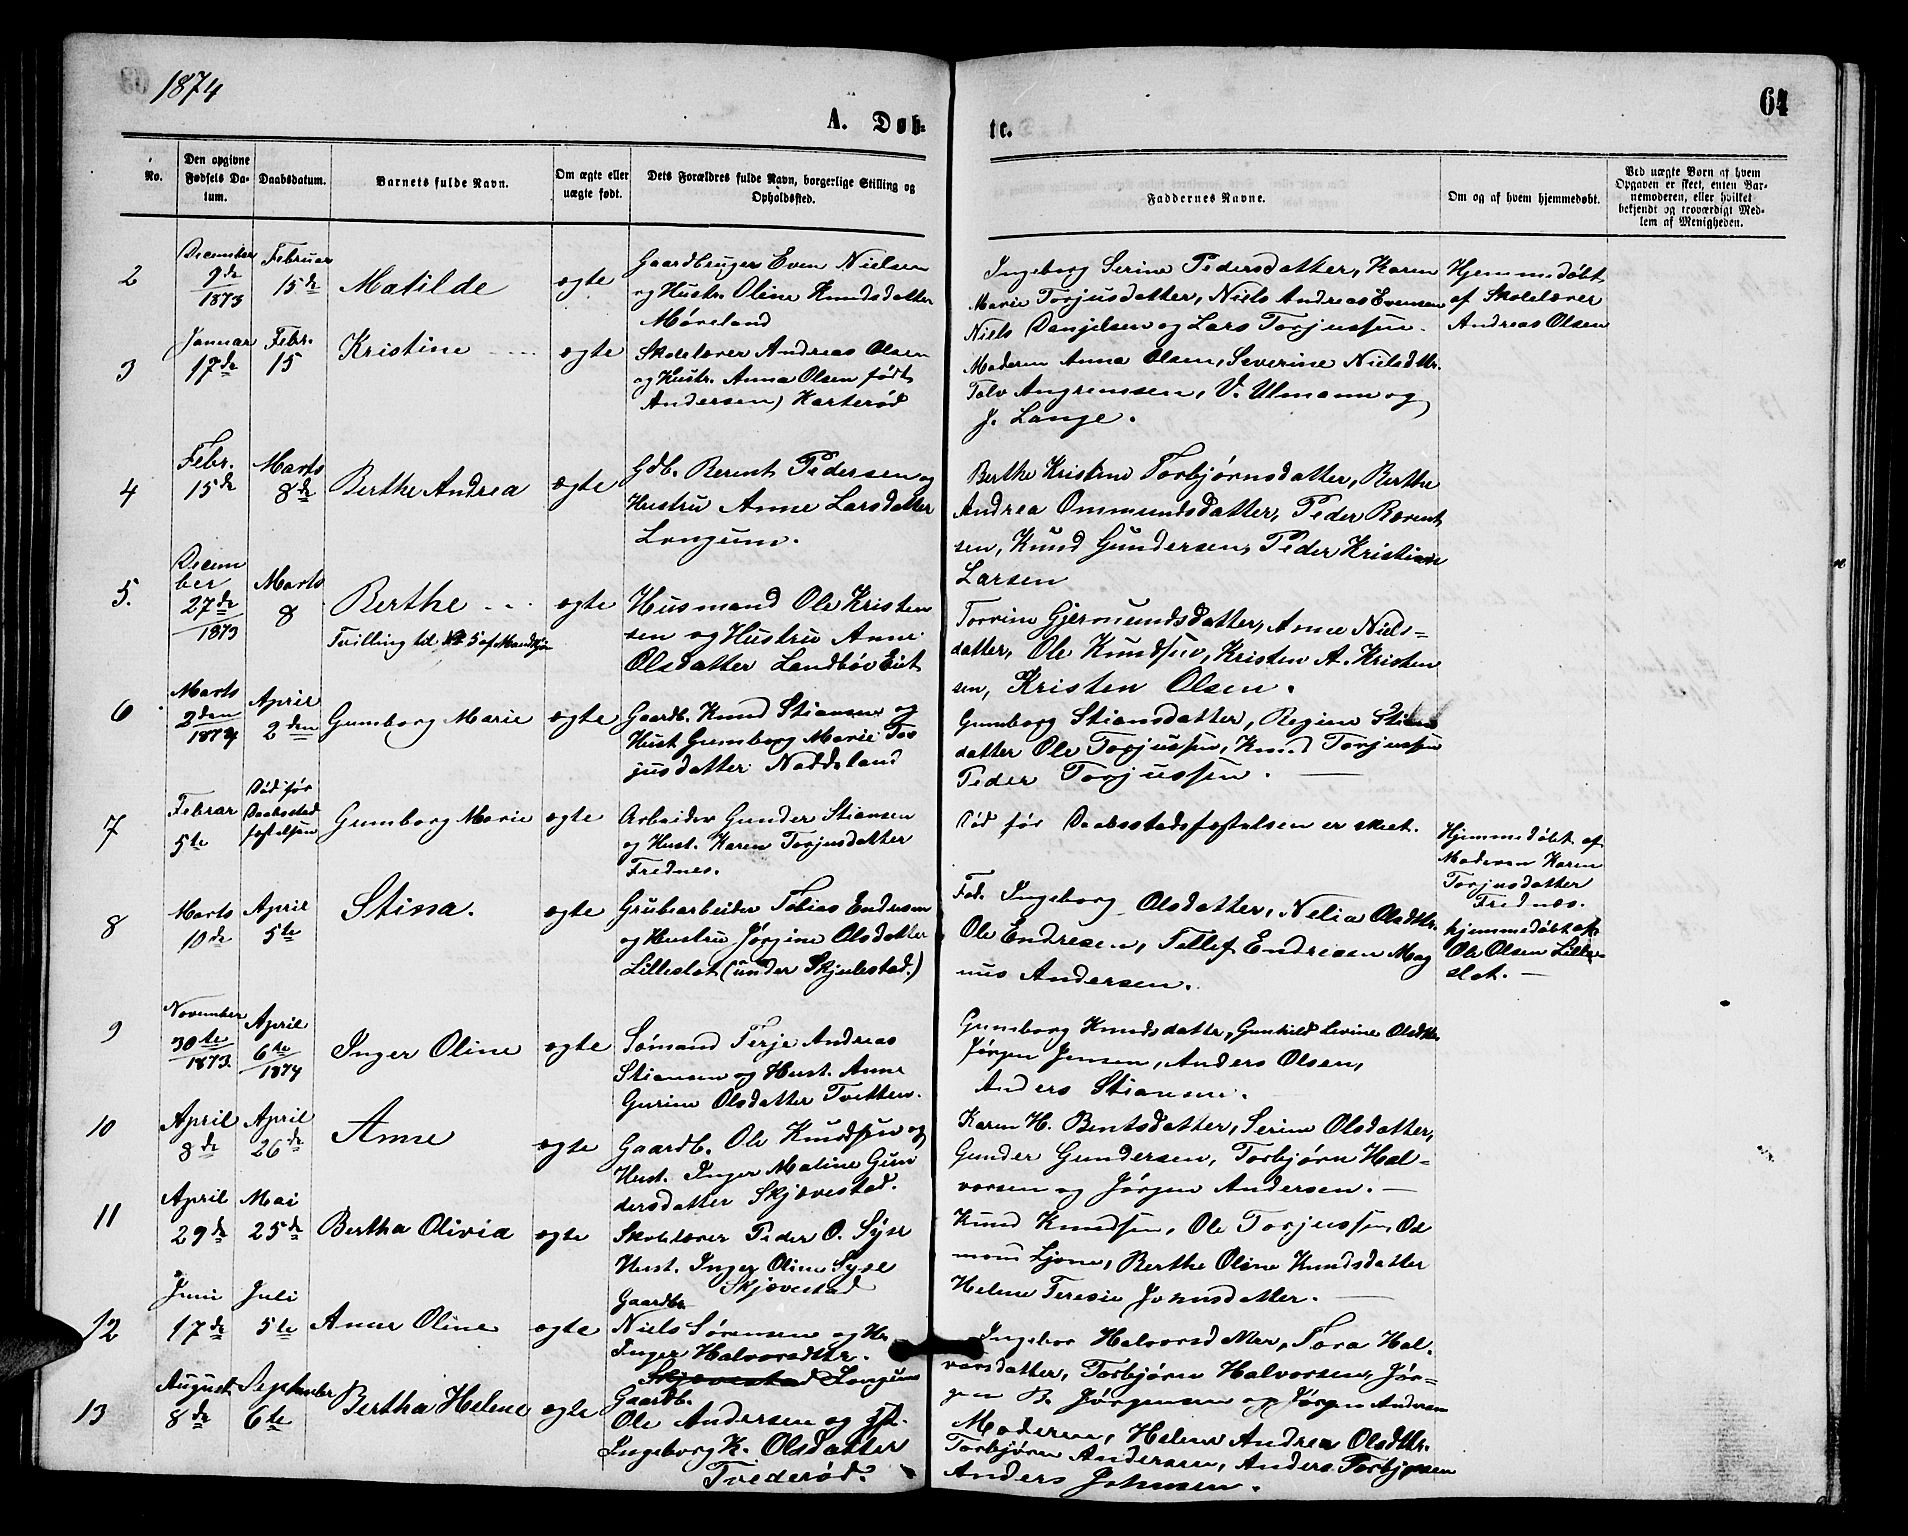 1874
64
A. Døb-
te.
No.
Den opgivne Fødsels Datum.
Daabsdatum.
Barnets fulde Navn.
Om ægte eller uægte født.
Dets Forældres fulde Navn, borgerlige Stilling og Opholdssted.
Faddernes Navne.
Om og af hvem hjemmedøbt.
Ved uægte Børn af hvem
Opgaven er skeet, enten Bar-
nemoderen, eller hvilket
bekjendt og troværdigt Med-
lem af Menigheden.
2
December
9de
1873
Februar
15de
Matilde
ægte
Gaardbruger Even Nielsen
og Hustr. Oline Knudsdatter
Møreland
Ingeborg Serine Pedersdatter, Karen
Marie Torjusdatter, Niels Andreas Evensen
Niels Danjelsen og Lars Torjussen.
Hjemmedøbt
af Skolelærer
Andreas Olsen
3
Januar
17de
Febr.
15
Kristine
ægte
Skolelærer Andreas Olsen
og Hustr. Anna Olsen født
Andersen) Harterød
Moderen Anna Olsen, Severine Nielsdttr.
Talv Angremssen, V. Ulmann og
J. Lange.
4
Febr.
15de
Marts
8de
Berthe Andrea
ægte
Gdb. Berent Pedersen og
Hustru Anne Larsdatter
Longum.
Berthe Kristine Torbjørnsdatter, Berthe
Andrea Ommundsdatter, Peder Bærent
sen, Knud Gundersen, Peder Kristian
Larsen
5.
Decem
ber
27de
1873
Marts
8
Berthe
Tvilling til No 5 af Mandkjøn
ægte
Husmand Ole Kristen
sen og Hustru Anne
Olsdatter Landbøv Eiet
Torvine Gjermundsdatter, Anne Niels-
datter, Ole Knudsen, Kristen A. Kristen
sen, Kristen Olsen.
6
Marts
2den
1874
April
2den
Gumborg Marie
ægte
Gaardb. Knud Stiansen og
Hust Gumborg Marie Tor
jusdatter Naddeland
Gumborg Stiansdatter, Regine Stians
datter Ole Torjussen, Knud Torjussen
Peder Torjussen.
7
Februar
5te
Død før
Daabsstad
fæstelsen
Gumborg Marie
ægte
Arbeider Gunder Stiansen
og Hust. Karen Torjusdatter
Frednes.
Død før Daabsstadsfæstelsen er skeet.
Hjemmedøbt af
Moderen Karen
Torjusdatter
Frednæs.
8
Marts
10de
April
5te
Stina.
ægte
Grubearbeider Tobias Endresen
og Hustru Jørgine Olsdatter
Lilleslot (under Skjulestad.)
Fad. Ingeborg Olsdatter, Nelia Olsdttr.
Ole Endresen, Tellef Endresen Mag
nus Andersen.
hjemmedøbt af
Ole Olsen Lille-
slot.
9
November
30te
1873.
April
6te
1874
Inger Oline
ægte
Sømand Terje Andreas
Stiansen og Hust. Anne
Gurine Olsdatter Tveitten.
Gumborg Knudsdattr, Gunhild Sevine Olsdttr.
Jørgen Jensen, Anders Olsen,
Anders Stiansen.
10
April
8de
April
26de
Anne
ægte
Gaardb. Ole Knudsen og
Hust. Inger Maline Gun
dersdatter Skjævestad.
Karen H. Bentsdatter, Serine Olsdatter,
Gunder Gundersen, Torbjørn Hal-
vorsen og Jørgen Andersen.
11
April
29de
Mai
25de
Bertha Olivia
ægte
Skolelærer Peder O. Syse
Hust. Inger Oline Syse
Skjævestad
Knud Knudsen, Ole Torjussen, Od
mom Ljone, Berthe Oline Knudsdatter
Helene Teresie Johnsdatter.
12
Juni
17de
Juli
5te
Anne Oline
ægte
Gaardbr
Niels Sørensen og H.
Inger Halvorsdttr.
Skjævestad Longum
Ingebor Halvorsdatter, Tora Hal-
vorsdatter, Torbjørn Halvorsen, Jør-
gen B. Jørgensen og Jørgen Andersen
13
August
8de
September
6te
Bertha Helene
ægte
Gaardb.
Ole Andersen og Hst.
Ingeborg K. Olsdatter
Tvederød.
Moderen, Helene Andrea Olsdttr.
Torbjørn Andersen, Anders Torbjørnsen
Anders Johnsen.